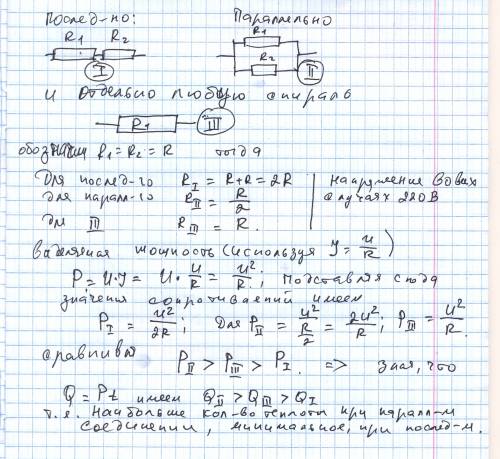 Послед-но: Параллельно
R₁ R₂ R₁
I R₂ II
и отдельно любую спираль
R₁ III
обозначим R₁ = R₂ = R тогда
Для послед-го R_I = R+R = 2R | напряжение во всех
для парал-го R_II = R/2 | случаях 220 В
для III R_III = R.
выделяемая мощность (используя I = U/R)
P = U·I = U · U/R = U²/R; подставляя сюда
значения сопротивлений имеем
P_I = U²/2R; для P_II = U²/(R/2) = 2U²/R; P_III = U²/R.
сравнивая P_II > P_III > P_I. => зная, что
Q = Pt имеем Q_II > Q_III > Q_I
т.е. наибольше кол-во теплоты при паралл-м
соединении, минимальное, при послед-м.